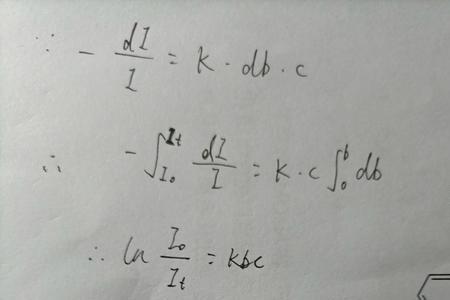 ∵ - dI/I = K · db · c
∴ - ∫_{I₀}^{I_t} dI/I = K · c ∫₀^b db
∴ ln I₀/I_t = Kbc